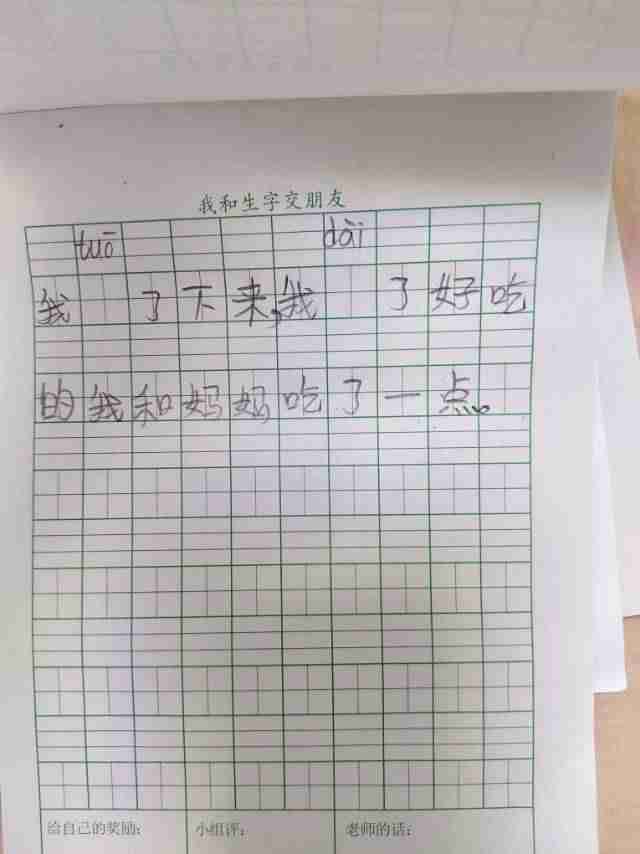 我和生字交朋友
tuō dài
我 了下来,我 了好吃
的我和妈妈吃了一点。
给自己的奖励: 小组评: 老师的话: